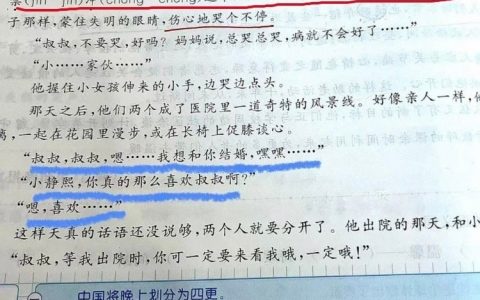 子那样，蒙住失明的眼睛，伤心地哭个不停。
“叔叔，不要哭，好吗？妈妈说，总哭总哭，病就不会好了……”
“小……家伙……”
他握住小女孩伸来的小手，边哭边点头。
那天之后，他们两个成了医院里一道奇特的风景线。好像亲人一样，他
离，一起在花园里漫步，或在长椅上促膝谈心。
“叔叔，叔叔，嗯……我想和你结婚，嘿嘿……”
“小静熙，你真的那么喜欢叔叔啊？”
“嗯，喜欢……”
这样天真的话语还没说够，两个人就要分开了。他出院的那天，和小
“叔叔，等我出院时，你可一定要来看我哦，一定哦！”
中国将晚上划分为四更。